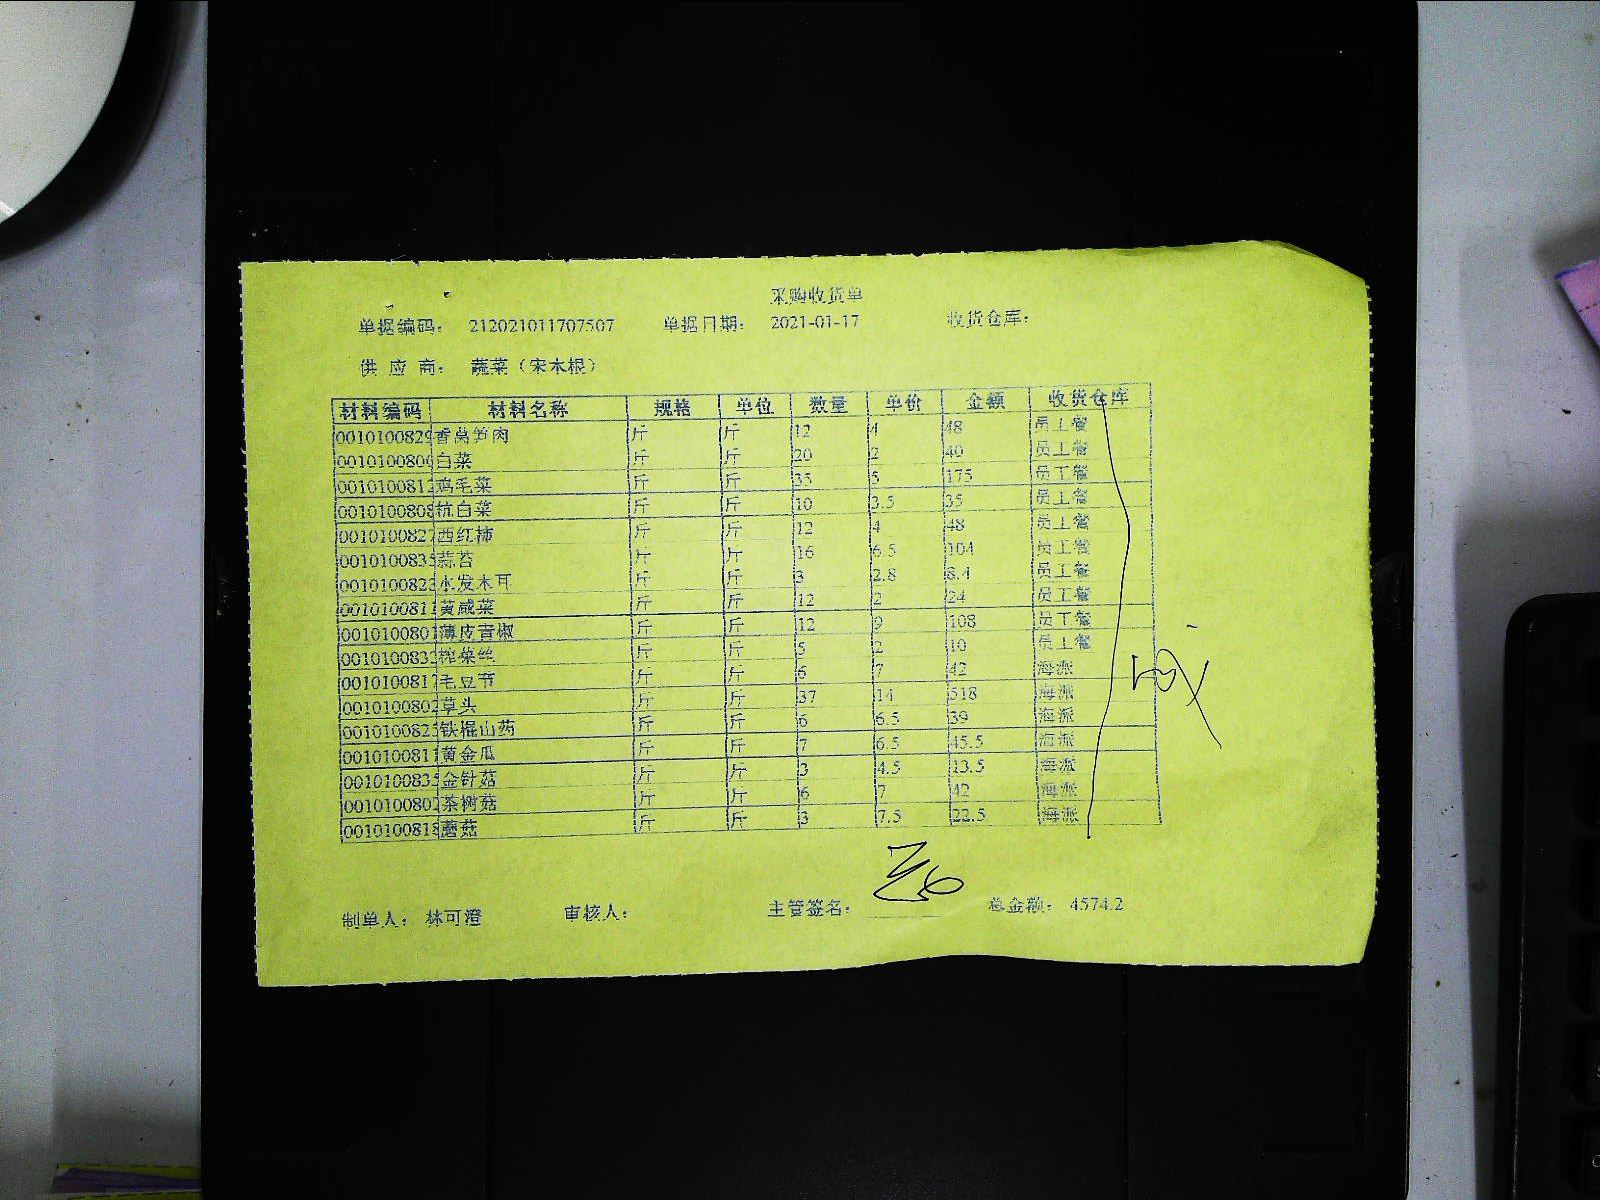 采购收货单
单据编码： 212021011707507 单据日期： 2021-01-17 收货仓库：
供应商： 蔬菜（宋木根）
材料编码 材料名称 规格 单位 数量 单价 金额 收货仓库
0010100829 香莴笋肉 斤 斤 12 4 48 员工餐
001010080 白菜 斤 斤 20 2 40 员工餐
0010100812 鸡毛菜 斤 斤 35 5 175 员工餐
0010100808 杭白菜 斤 斤 10 3.5 35 员工餐
0010100827 西红柿 斤 斤 12 4 48 员工餐
0010100835 蒜苔 斤 斤 16 6.5 104 员工餐
0010100822 水发木耳 斤 斤 3 2.8 8.4 员工餐
0010100811 黄咸菜 斤 斤 12 2 24 员工餐
0010100801 薄皮青椒 斤 斤 12 9 108 员工餐
0010100832 榨菜丝 斤 斤 5 2 10 员工餐
0010100817 毛豆节 斤 斤 6 7 42 海派
0010100802 草头 斤 斤 37 14 518 海派
0010100825 铁棍山药 斤 斤 6 6.5 39 海派
0010100811 黄金瓜 斤 斤 7 6.5 45.5 海派
0010100835 金针菇 斤 斤 3 4.5 13.5 海派
0010100802 茶树菇 斤 斤 6 7 42 海派
0010100818 蘑菇 斤 斤 3 7.5 22.5 海派
制单人： 林可澄 审核人： 主管签名： 总金额： 4574.2